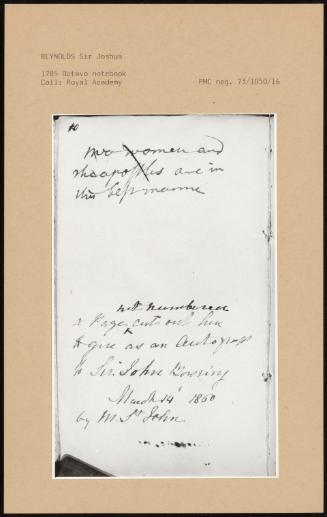 REYNOLDS Sir Joshua
1785 Octavo notebook
Coll: Royal Academy
PMC neg. 73/1050/16
10
two women and
the apostles are in
his best manner
not numbered
a Page cut out here
to give as an Autograph
to Sir John Bowring
March 14 1860
by M. St John